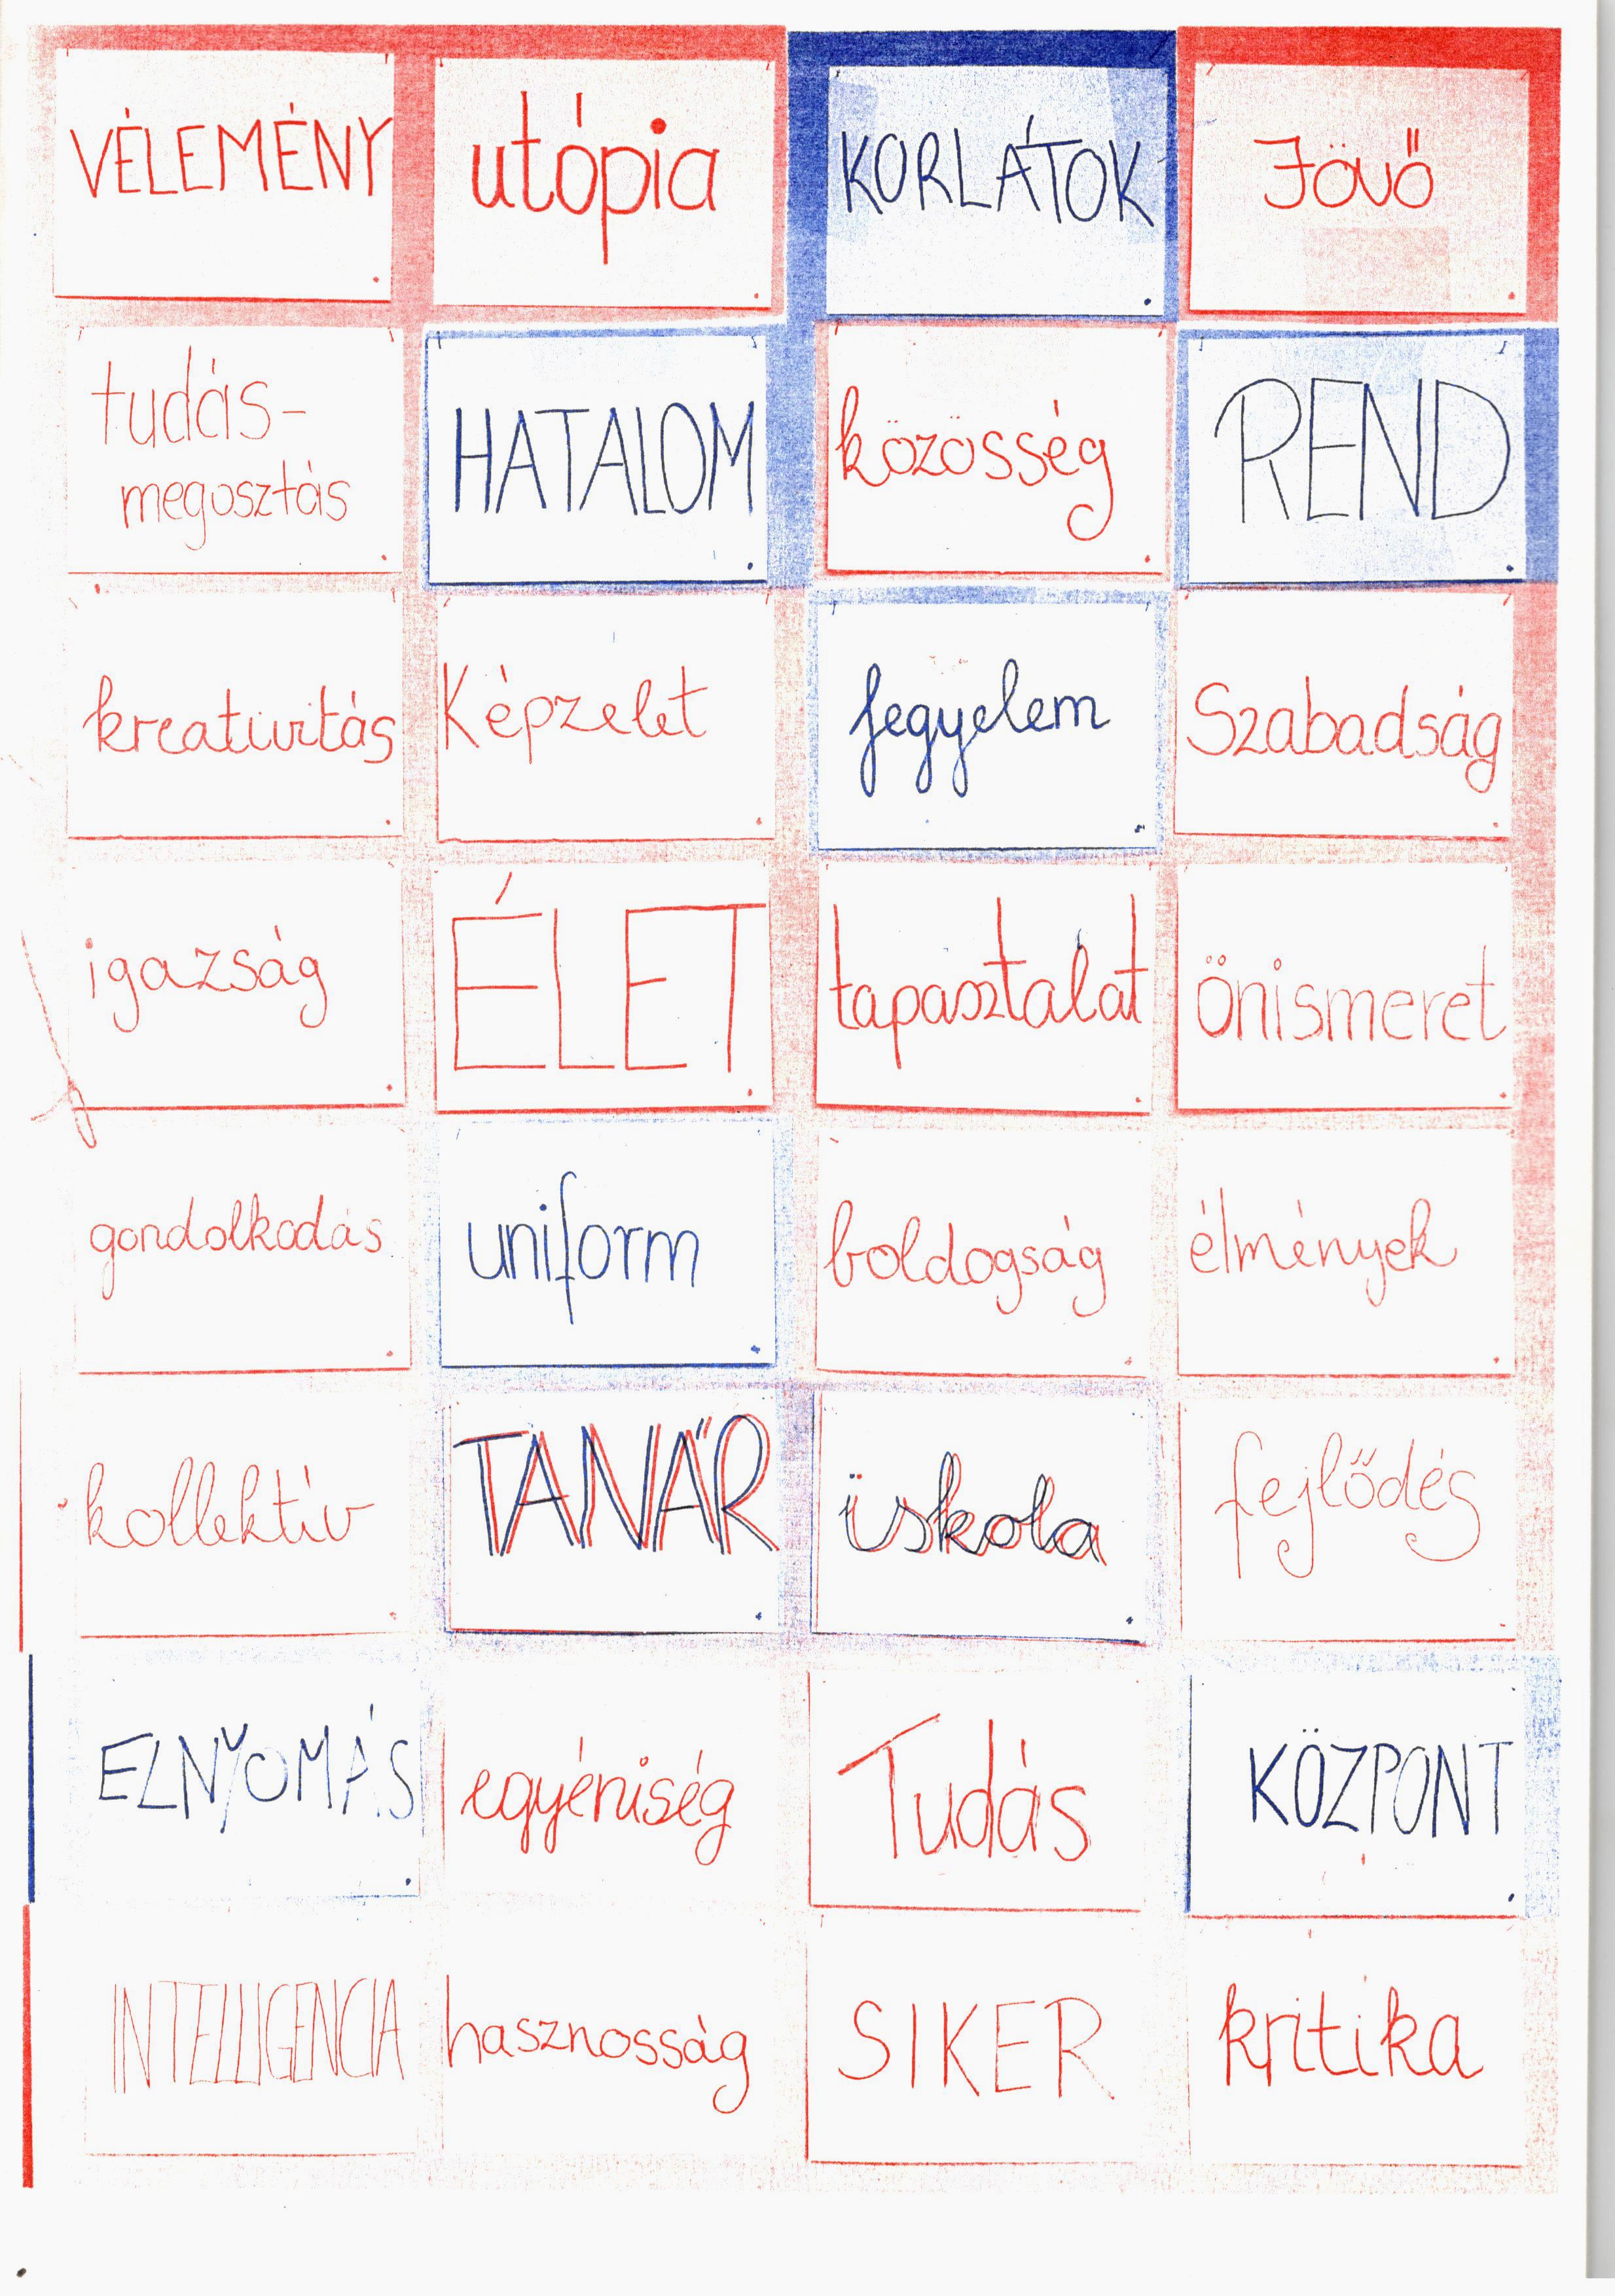 VÉLEMÉNY
utópia
KORLÁTOK
Jövő
tudás-
megosztás
HATALOM
közösség
REND
kreativitás
Képzelet
fegyelem
Szabadság
igazság
ÉLET
tapasztalat
önismeret
gondolkodás
uniform
boldogság
élmények
kollektív
TANÁR
iskola
fejlődés
ELNYOMÁS
egyéniség
Tudás
KÖZPONT
INTELLIGENCIA
hasznosság
SIKER
kritika